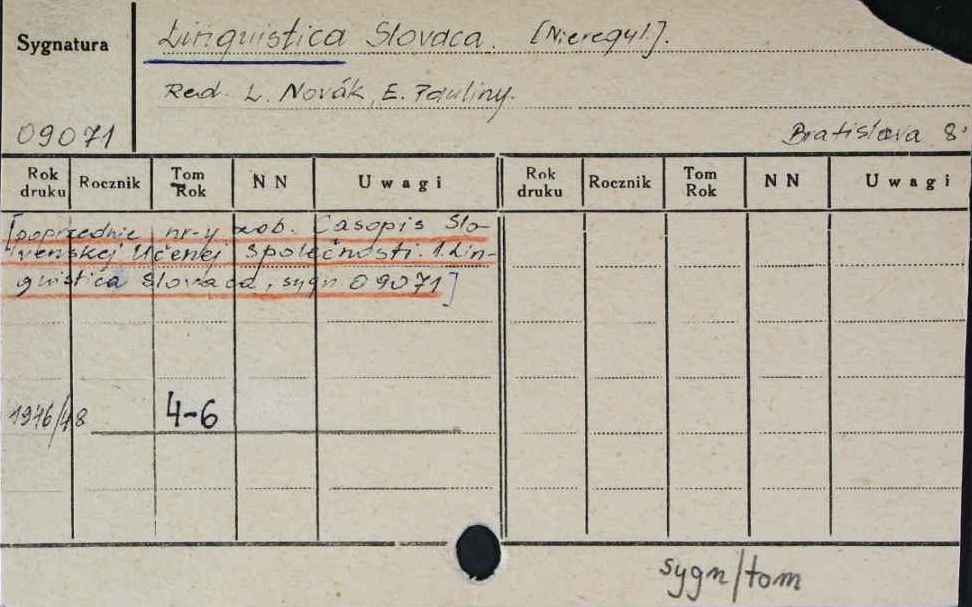 Sygnatura
Linguistica Slovaca. [Nieregul.].
Red. L. Novák, E. Pauliny.
09071
Bratislava 8°
Rok druku Rocznik Tom Rok NN Uwagi Rok druku Rocznik Tom Rok NN Uwagi
[poprzednie nr-y zob. Časopis Slo-
venskej Učenej Společnosti. 1. Lin-
guistica Slovaca, sygn 09071]
1946/48 4-6
sygn/tom